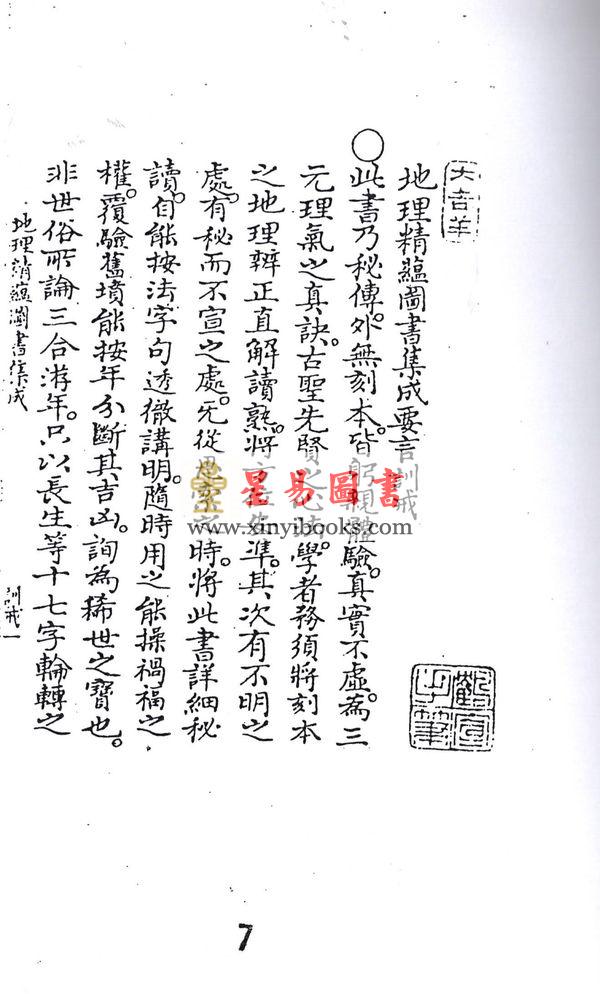 大吉羊
地理精蘊圖書集成要言訓戒
〇此書乃秘傳。外無刻本。皆躬親體驗。真實不虛。為三
元理氣之真訣。古聖先賢之心法。學者務須將刻本
之地理辨正直解讀熟。將準。其次有不明之
處。有秘而不宣之處。無從思索之時。將此書詳細秘
讀。自能按法字句透徹講明。隨時用之能操禍福之
權。覆驗舊墳能按年分斷其吉凶。詢為稀世之寶也。
非世俗所論三合游年。只以長生等十七字輪轉之
地理精蘊圖書集成
訓戒一
星易圖書
www.xinyibooks.com
7